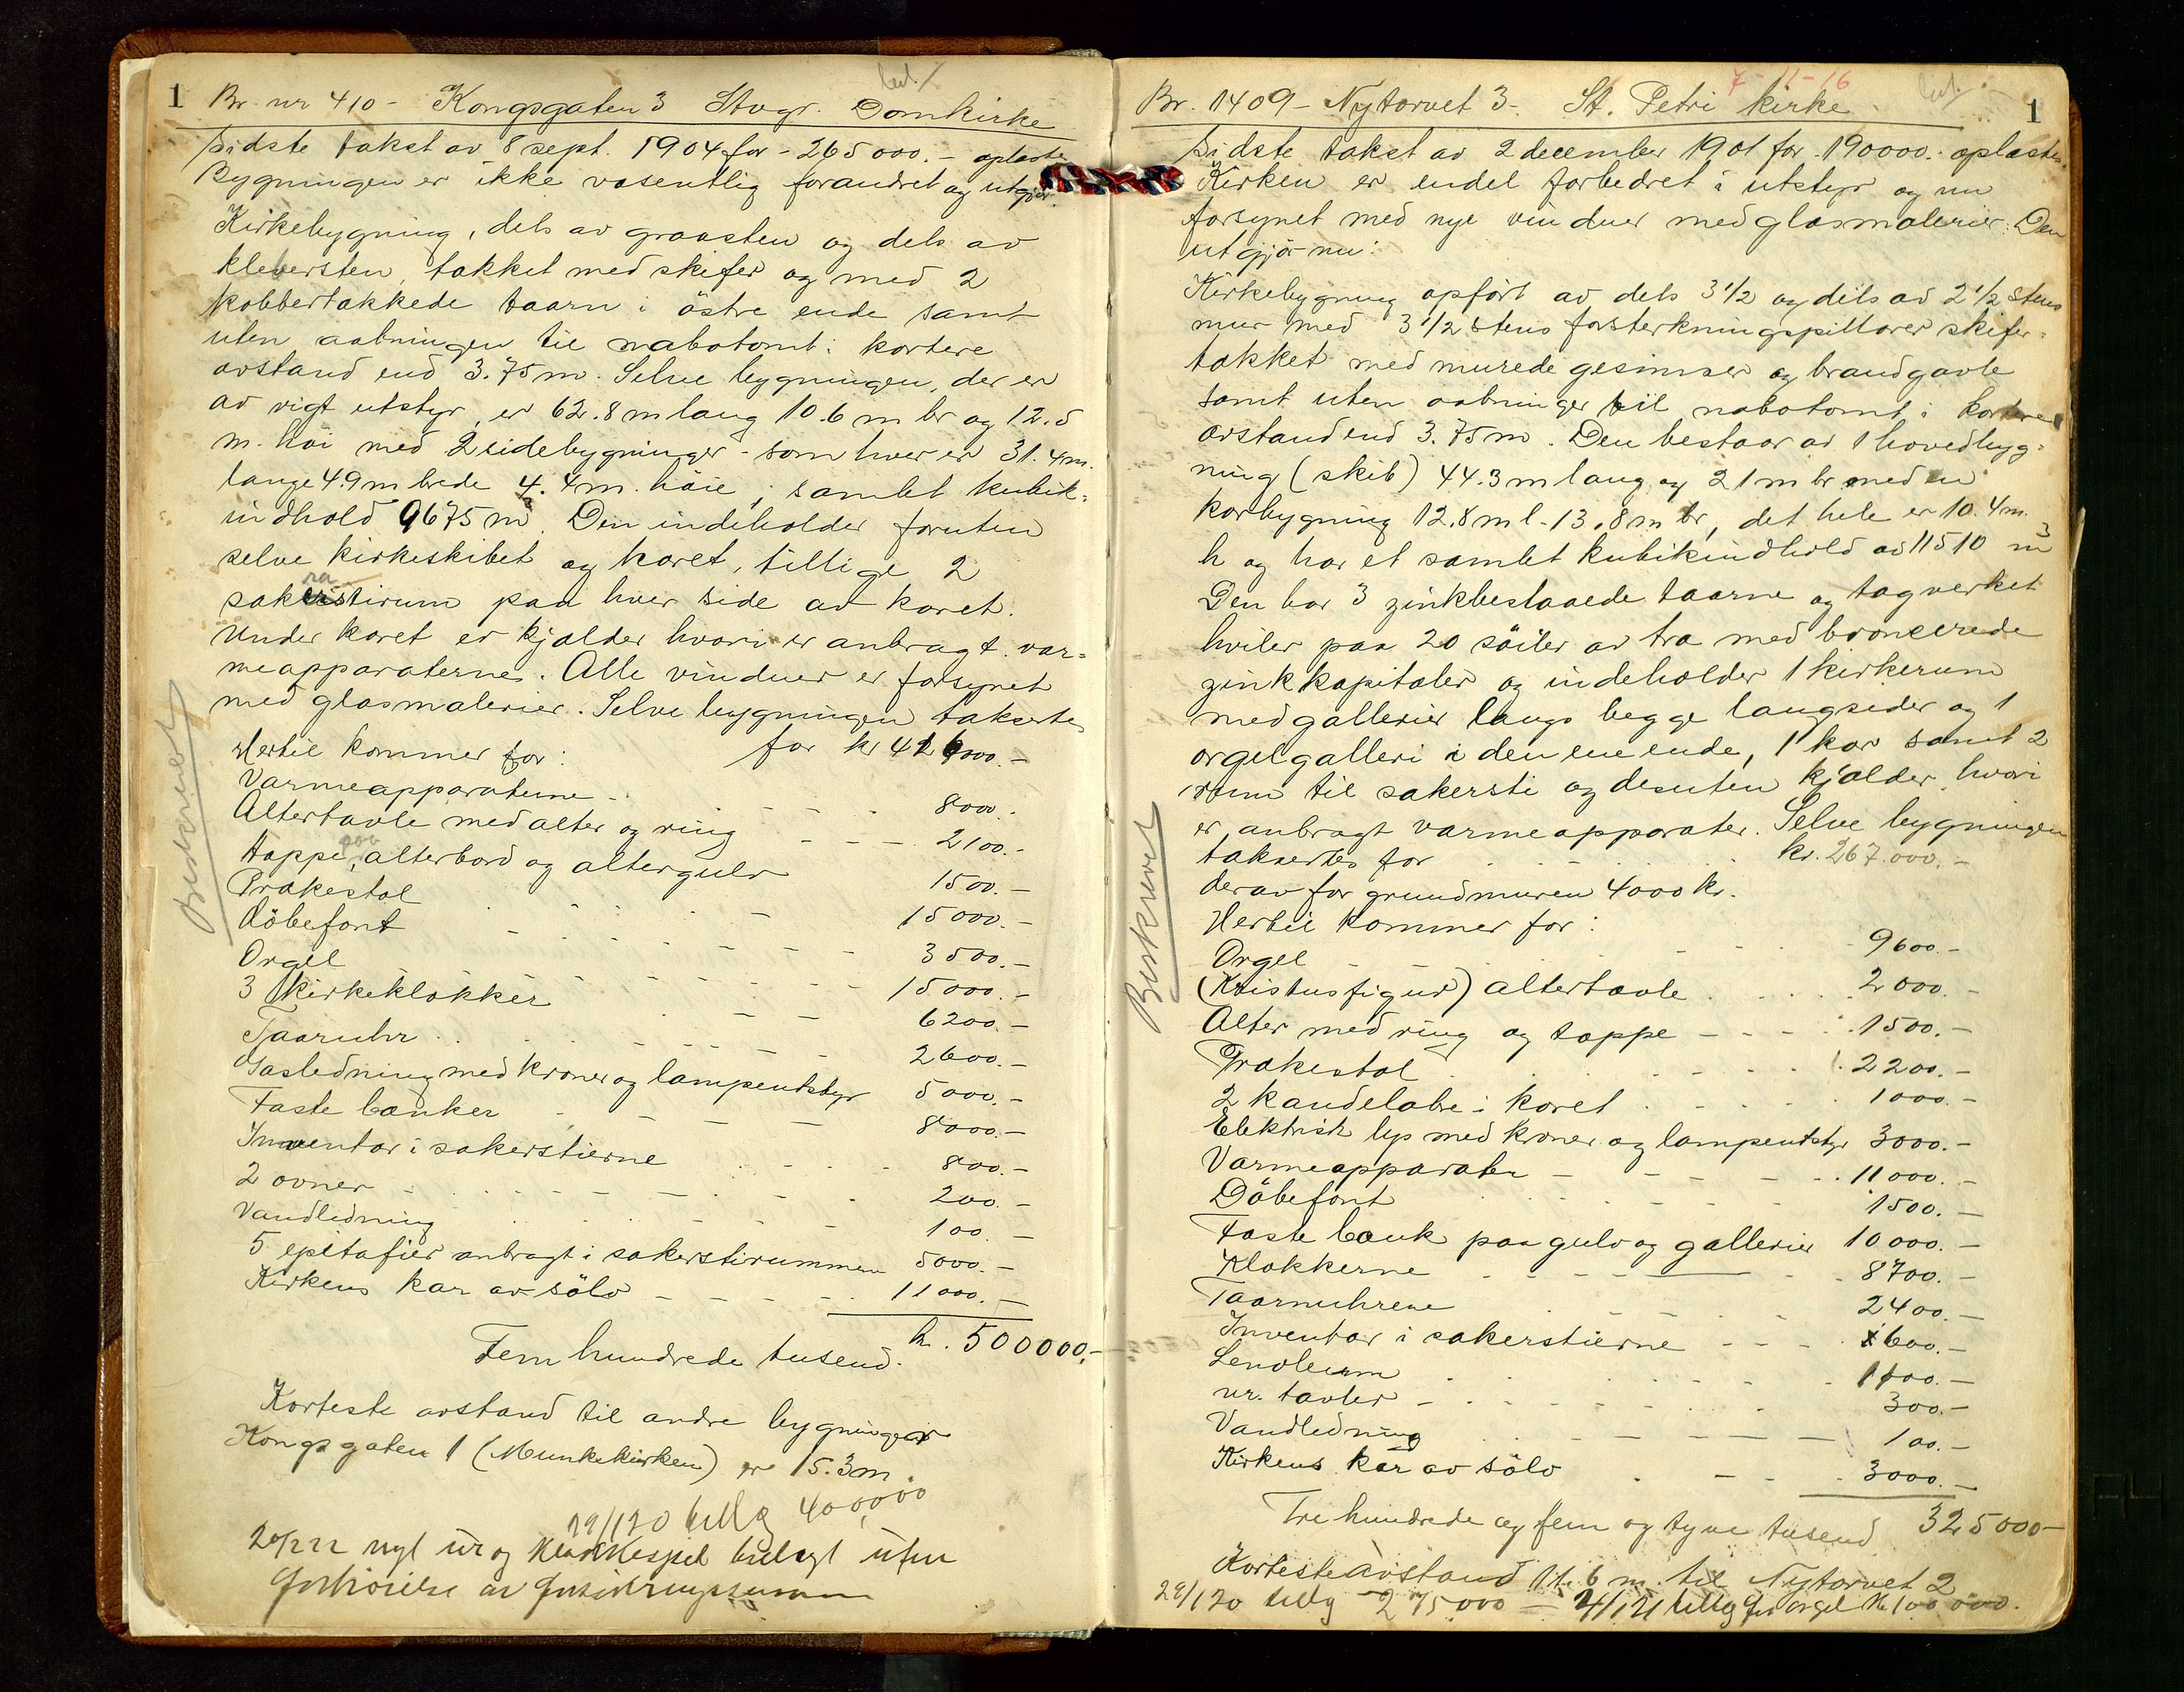 1 Br. nr 410 - Kongsgaten 3 Stvgr. Domkirke
Sidste takst av 8 sept. 1904 for - 265000.- oplæstes
Bygningen er ikke væsentlig forandret og utgjør.
Kirkebygning, dels av graasten og dels av
klebersten, tækket med skifer og med 2
kobbertækkede taarn i östre ende samt
uten aabningen til nabotomt i kortere
avstand end 3.75 m. Selve bygningen, der er
av rigt utstyr, er 62.8 m lang 10.6 m br og 12.5
m. höi med 2 sidebygninger - som hver er 31.4 m.
lange 4.9 m brede 4.4 m. höie; samlet kubik-
indhold 9675 m³. Den indeholder foruten
selve kirkeskibet og koret, tillige 2
sakristirum paa hver side av koret.
Under koret er kjælder hvori er anbragt var-
meapparaterne. Alle vinduer er forsynet
med glasmalerier. Selve bygningen taksertes
for kr 416000.-
Hertil kommer for:
Varmeapparaterne - 8000.-
Altertavle med alter og ring 2100.-
Tæppe, alterbord og altergulv 1500.-
Prækestol 15000.-
Döbefont 3500.-
Orgel 15000.-
3 kirkeklokker 6200.-
Taarnuhr 2600.-
Gasledning med kroner og lampeutstyr 5000.-
Faste bænker 8000.-
Inventar i sakerstierne 800.-
2 ovner 200.-
Vandledning 100.-
5 epitafier anbragt i sakerstirummen 5000.-
Kirkens kar av sölv 11000.-
kr. 500000.-
Fem hundrede tusend.
Korteste avstand til andre bygninger
Kongsgaten 1 (Munkekirken) er 15.3 m.
29/1 20 tillæg 400,000
20/2 22 nyt ur og klokkespil indlagt uten
forhöielse av forsikringssummen
Beskrevet
7-11-16
Br. 1409 - Nytorvet 3 - St. Petri kirke 1
Sidste takst av 2 december 1901 for 190000.- oplæstes.
Kirken er endel forbedret i utstyr og nu
forsynet med nye vinduer med glasmalerier. Den
utgjör nu:
Kirkebygning opfört av dels 3 1/2 og dels av 2 1/2 stens
mur med 3 1/2 stens forsterkningspillarer skifer-
tækket med murede gesimser og brandgavle
samt uten aabninger til nabotomt i kortere
avstand end 3.75 m. Den bestaar av 1 hovedbyg-
ning (skib) 44.3 m lang og 21 m br med en
korbygning 12.8 m l - 13.8 m br, det hele er 10.4 m.
h og har et samlet kubikindhold av 11510 m³
Den har 3 zinkbeslaaede taarne og tagverket
hviler paa 20 söiler av træ med broncerede
zinkkapitæler og indeholder 1 kirkerum
med gallerier langs begge langsider og 1
orgelgalleri i den ene ende, 1 kor samt 2
rum til sakersti og desuten kjælder, hvori
er anbragt varmeapparater. Selve bygningen
taksertes for kr. 267.000.-
derav for grundmuren 4000 kr.
Hertil kommer for:
Orgel 9600.-
(Kristusfigur) altertavle 2000.-
Alter med ring og tæppe 1500.-
Prækestol 2200.-
2 kandelabre i koret 1000.-
Elektrisk lys med kroner og lampeutstyr 3000.-
Varmeapparater 11000.-
Döbefont 1500.-
Faste bænk paa gulv og gallerier 10000.-
Klokkerne 8700.-
Taarnuhrene 2400.-
Inventar i sakerstierne 600.-
Lenoleum 1100.-
nr. tavler 300.-
Vandledning 100.-
Kirkens kar av sölv 3000.-
Tre hundrede og fem og tyve tusend 325000-
Korteste avstand 11.6 m. til Nytorvet 2
29/1 20 tillæg 275.000 - 4/1 21 tillæg for orgel kr 100 000.
Beskrevet